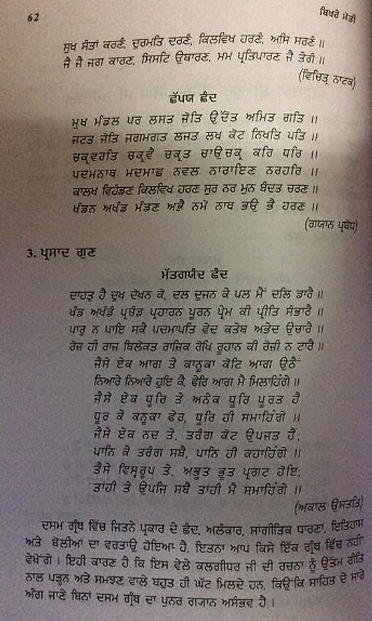 62
ਬਿਖਰੇ ਮੋਤੀ
ਸੁਖ ਸੰਤਾਂ ਕਰਣੰ, ਦੁਰਮਤਿ ਦਰਣੰ, ਕਿਲਵਿਖ ਹਰਣੰ, ਅਸਿ ਸਰਣੰ ॥
ਜੈ ਜੈ ਜਗ ਕਾਰਣ, ਸਿਸਟਿ ਉਬਾਰਣ, ਮਮ ਪ੍ਰਤਿਪਾਰਣ ਜੈ ਤੇਗੰ ॥
(ਵਿਚਿਤ੍ਰ ਨਾਟਕ)
ਛੱਪਯ ਛੰਦ
ਮੁਖ ਮੰਡਲ ਪਰ ਲਸਤ ਜੋਤਿ ਉਦੋਤ ਅਮਿਤ ਗਤਿ ॥
ਜਟਤ ਜੋਤਿ ਜਗਮਗਤ ਲਜਤ ਲਖ ਕੋਟ ਨਿਖਤਿ ਪਤਿ ॥
ਚਕ੍ਰਵਰਤਿ ਚਕ੍ਰਵੈ ਚਕ੍ਰਤ ਚਾਉਚਕ੍ਰ ਕਰਿ ਧਰਿ ॥
ਪਦਮਨਾਥ ਪਦਮਾਛ ਨਵਲ ਨਾਰਾਇਣ ਨਰਹਰਿ ॥
ਕਾਲਖ ਵਿਹੰਡਣ ਕਿਲਵਿਖ ਹਰਣ ਸੁਰ ਨਰ ਮੁਨ ਬੰਦਤ ਚਰਣ ॥
ਖੰਡਨ ਅਖੰਡ ਮੰਡਣ ਅਭੈ ਨਮੋ ਨਾਥ ਭਉ ਭੈ ਹਰਣ ॥
(ਗਯਾਨ ਪ੍ਰਬੋਧ)
3. ਪ੍ਰਸਾਦ ਗੁਣ
ਮੱਤਗਯੰਦ ਛੰਦ
ਦਾਹਤੁ ਹੈ ਦੁਖ ਦੋਖਨ ਕੋ, ਦਲ ਦੁਜਨ ਕੇ ਪਲ ਮੈਂ ਦਲਿ ਡਾਰੈ ॥
ਖੰਡ ਅਖੰਡ ਪ੍ਰਚੰਡ ਪ੍ਰਹਾਰਨ ਪੂਰਨ ਪ੍ਰੇਮ ਕੀ ਪ੍ਰੀਤਿ ਸੰਭਾਰੈ ॥
ਪਾਰੁ ਨ ਪਾਇ ਸਕੈ ਪਦਮਾਪਤਿ ਵੇਦ ਕਤੇਬ ਅਭੇਦ ਉਚਾਰੈ ॥
ਰੋਜ ਹੀ ਰਾਜ ਬਿਲੋਕਤ ਰਾਜਿਕ ਰੋਪਿ ਰੂਹਾਨ ਕੀ ਰੋਜੀ ਨ ਟਾਰੈ ॥
ਜੈਸੇ ਏਕ ਆਗ ਤੇ ਕਾਨੂਕਾ ਕੋਟਿ ਆਗ ਉਠੈਂ
ਨਿਆਰੇ ਨਿਆਰੇ ਹੁਇ ਕੈ, ਫੇਰਿ ਆਗ ਮੈ ਮਿਲਾਹਿੰਗੇ ॥
ਜੈਸੇ ਏਕ ਧੂਰਿ ਤੇ ਅਨੇਕ ਧੂਰਿ ਪੂਰਤ ਹੈ
ਧੂਰ ਕੇ ਕਨੂਕਾ ਫੇਰ, ਧੂਰਿ ਹੀ ਸਮਾਹਿੰਗੇ ॥
ਜੈਸੇ ਏਕ ਨਦ ਤੇ, ਤਰੰਗ ਕੋਟ ਉਪਜਤ ਹੈਂ;
ਪਾਨਿ ਕੇ ਤਰੰਗ ਸਬੈ, ਪਾਨਿ ਹੀ ਕਹਾਹਿੰਗੇ ॥
ਤੈਸੇ ਵਿਸ੍ਵਰੂਪ ਤੇ, ਅਭੂਤ ਭੂਤ ਪ੍ਰਗਟ ਹੋਇ;
ਤਾਂਹੀ ਤੇ ਉਪਜਿ ਸਬੈ ਤਾਂਹੀ ਮੈ ਸਮਾਹਿੰਗੇ ॥
(ਅਕਾਲ ਉਸਤਤਿ)
ਦਸਮ ਗ੍ਰੰਥ ਵਿੱਚ ਜਿਤਨੇ ਪ੍ਰਕਾਰ ਦੇ ਛੰਦ, ਅਲੰਕਾਰ, ਸਾਂਗੀਤਿਕ ਧਾਰਣਾ, ਇਤਿਹਾਸ
ਅਤੇ ਬੋਲੀਆਂ ਦਾ ਵਰਤਾਉ ਹੋਇਆ ਹੈ, ਇਤਨਾ ਆਪ ਕਿਸੇ ਇੱਕ ਗ੍ਰੰਥ ਵਿੱਚ ਨਹੀਂ
ਵੇਖੋਂਗੇ । ਇਹੀ ਕਾਰਣ ਹੈ ਕਿ ਇਸ ਵੇਲੇ ਕਲਗੀਧਰ ਜੀ ਦੀ ਰਚਨਾ ਨੂੰ ਉੱਤਮ ਰੀਤਿ
ਨਾਲ ਪੜ੍ਹਨ ਅਤੇ ਸਮਝਣ ਵਾਲੇ ਬਹੁਤ ਹੀ ਘੱਟ ਮਿਲਦੇ ਹਨ, ਕਿਉਂਕਿ ਸਾਹਿਤ ਦੇ ਸਾਰੇ
ਅੰਗ ਜਾਣੇ ਬਿਨਾਂ ਦਸਮ ਗ੍ਰੰਥ ਦਾ ਪੁਨਰ ਗਯਾਨ ਅਸੰਭਵ ਹੈ ।